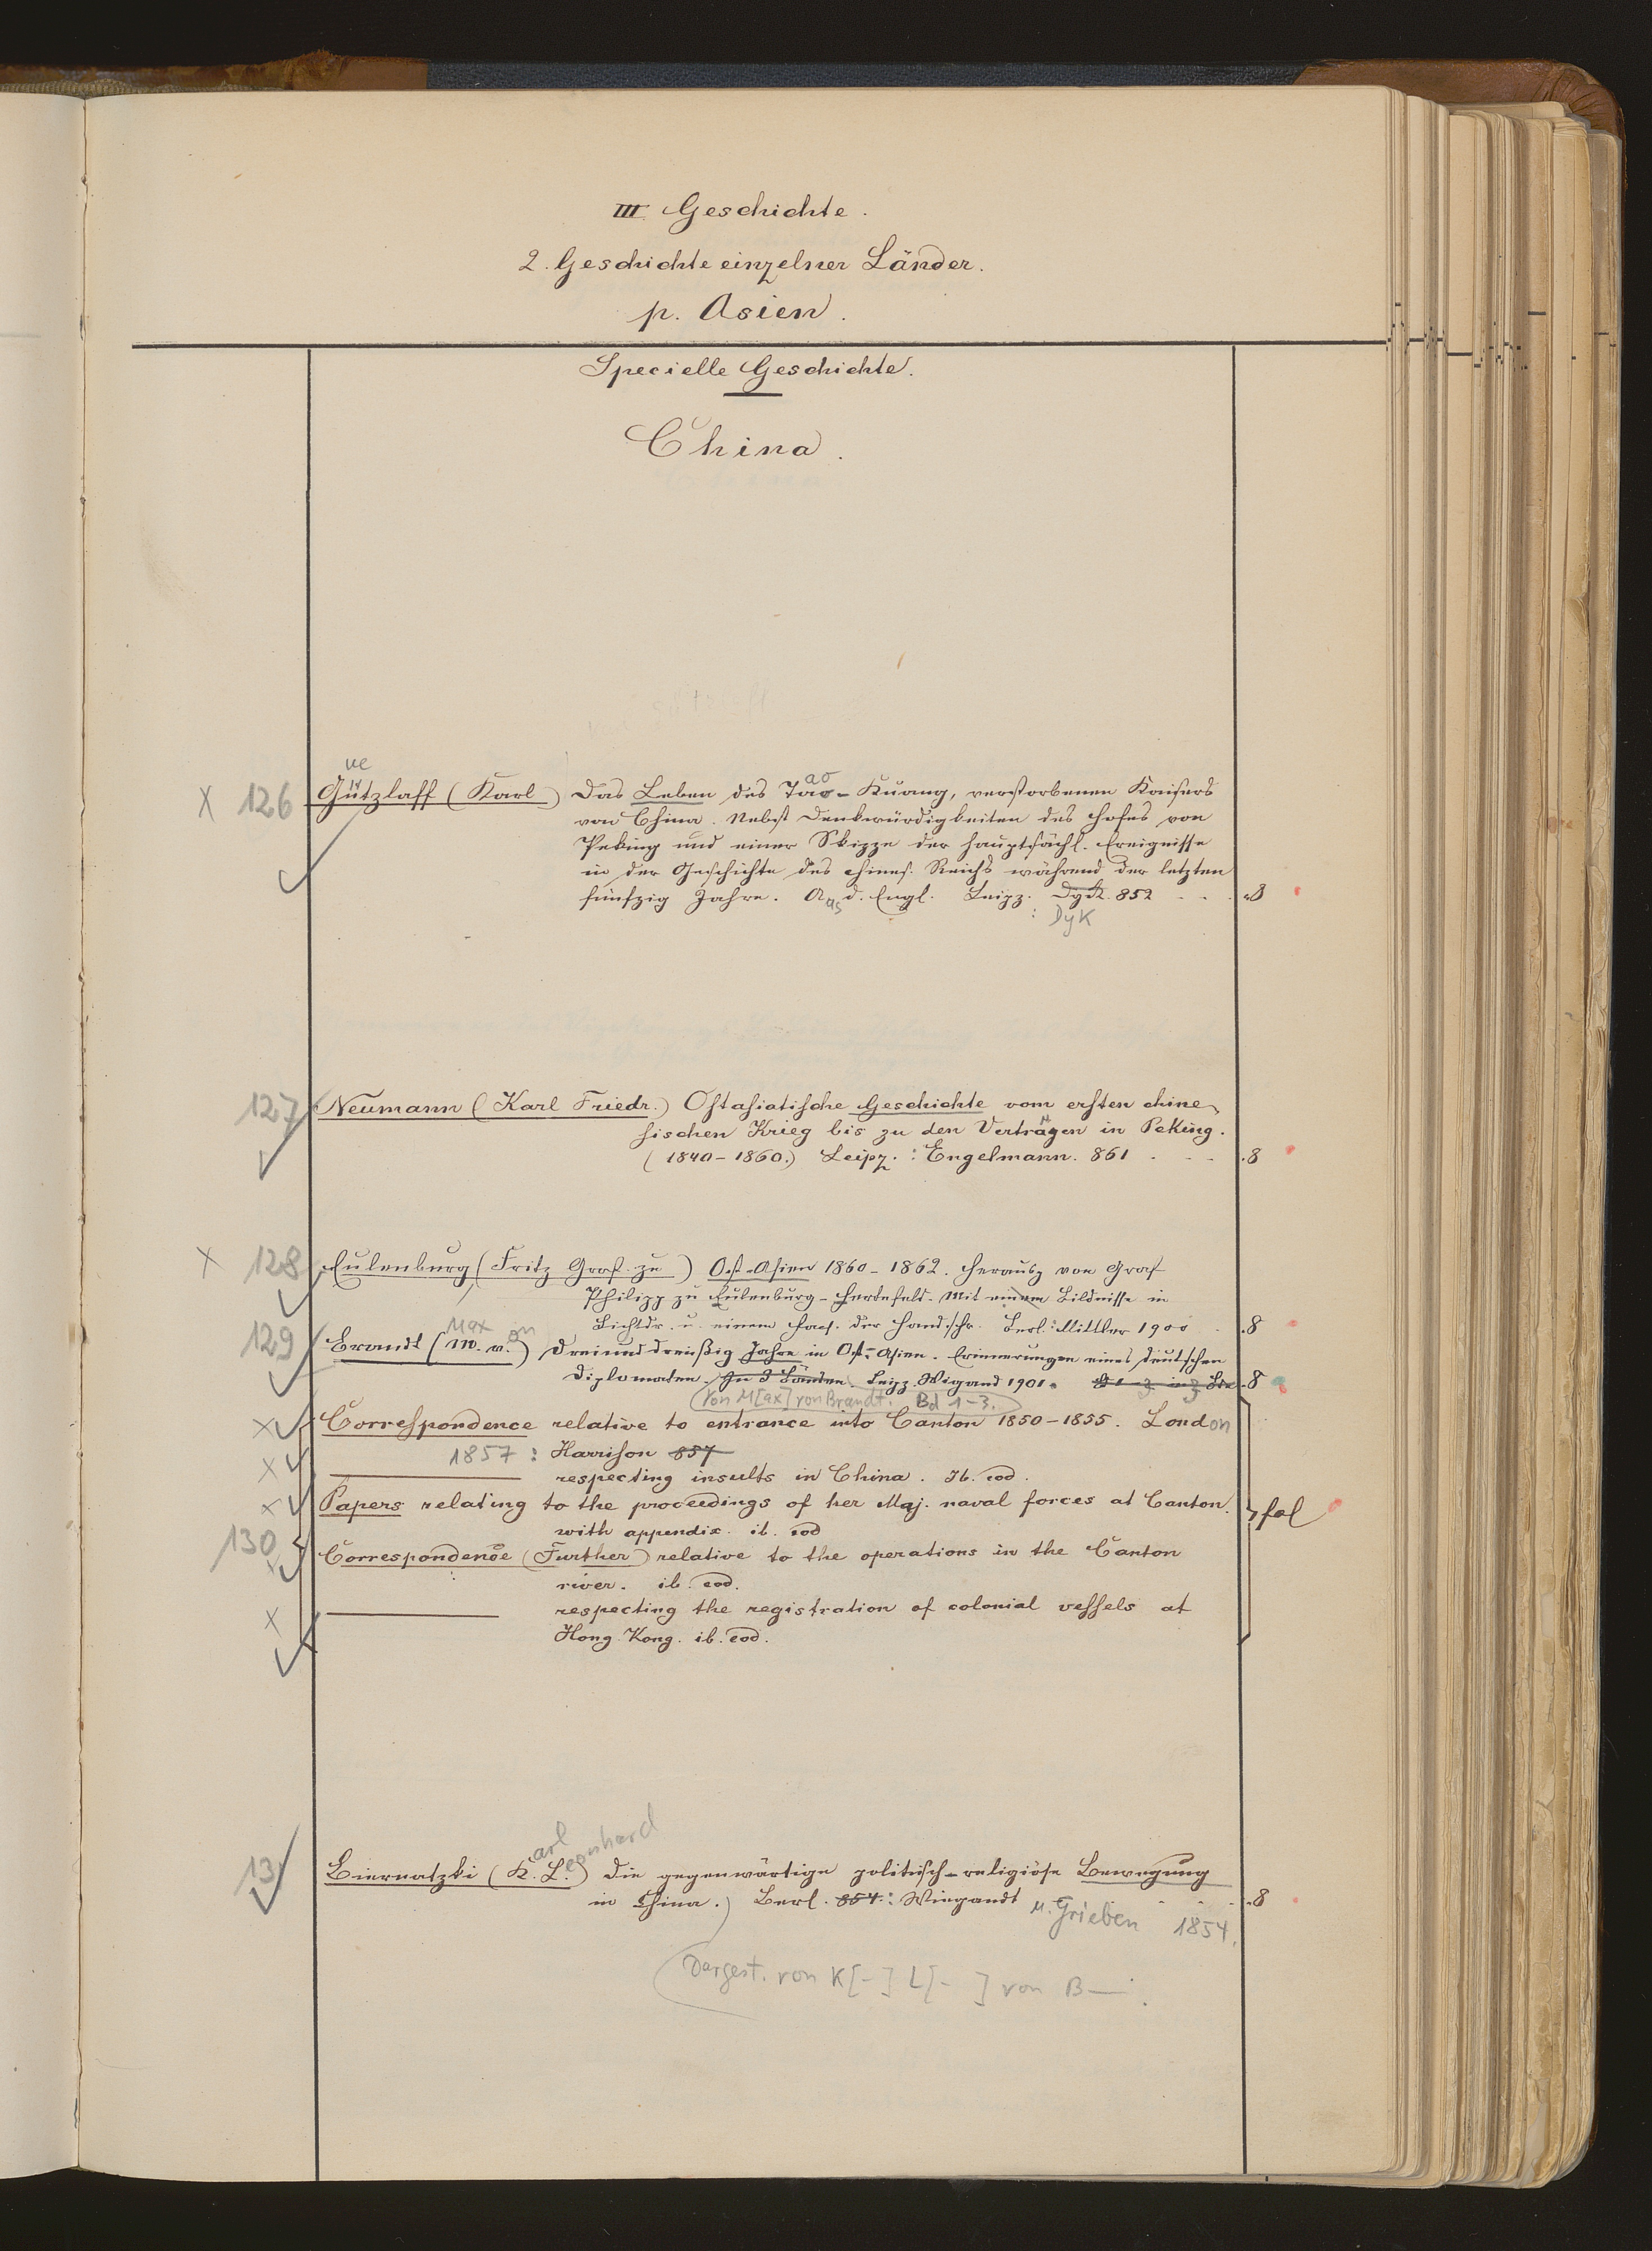 III Geschichte.
2. Geschichte einzelner Länder.
p. Asien.
Specielle Geschichte.
China.
ue
X 126 Gützlaff (Karl) Das Leben des Tao-Kuang, verstorbenen Kaisers
ao
von China. Nebst Denkwürdigkeiten des Hofes von
Peking und einer Skizze der hauptsächl. Ereignisse
in der Geschichte des chines. Reichs während der letzten
fünfzig Jahre. Aus d. Engl. Leipz. Dyk. 852 - - . 8
: Dyk
127 Neumann (Karl Friedr.) Ostasiatische Geschichte vom ersten chine-
sischen Krieg bis zu den Verträgen in Peking.
(1840-1860.) Leipz. : Engelmann. 861 - - - . 8
X 128 Eulenburg (Fritz Graf zu) Ost-Asien 1860-1862. Herausg von Graf
Philipp zu Eulenburg-Hertefeld. Mit einem Bildnisse in
Lichtdr. u. einem Facs. der Handschr. Berl.: Mittler 1900 . 8
Max on
129 Brandt (M. v.) Dreiunddreißig Jahre in Ost-Asien. Erinnerungen eines deutschen
Diplomaten. In 3 Bänden. Leipz. Wigand 1901. . 8
(Von M[ax] von Brandt. Bd 1-3.)
X Correspondence relative to entrance into Canton 1850-1855. London
1857 : Harrison 857
X respecting insults in China. Ib. eod.
X Papers relating to the proceedings of her Maj. naval forces at Canton. fol
with appendix. ib. eod
130 Correspondence (Further) relative to the operations in the Canton
river. ib. eod.
X respecting the registration of colonial vessels at
Hong Kong. ib. eod.
arl eonhard
131 Biernatzki (K. L.) Die gegenwärtige politisch-religiöse Bewegung
in China.) Berl. 854: Wiegandt u. Grieben 1854. - - . 8
Dargest. von K[-] L[-] von B—.